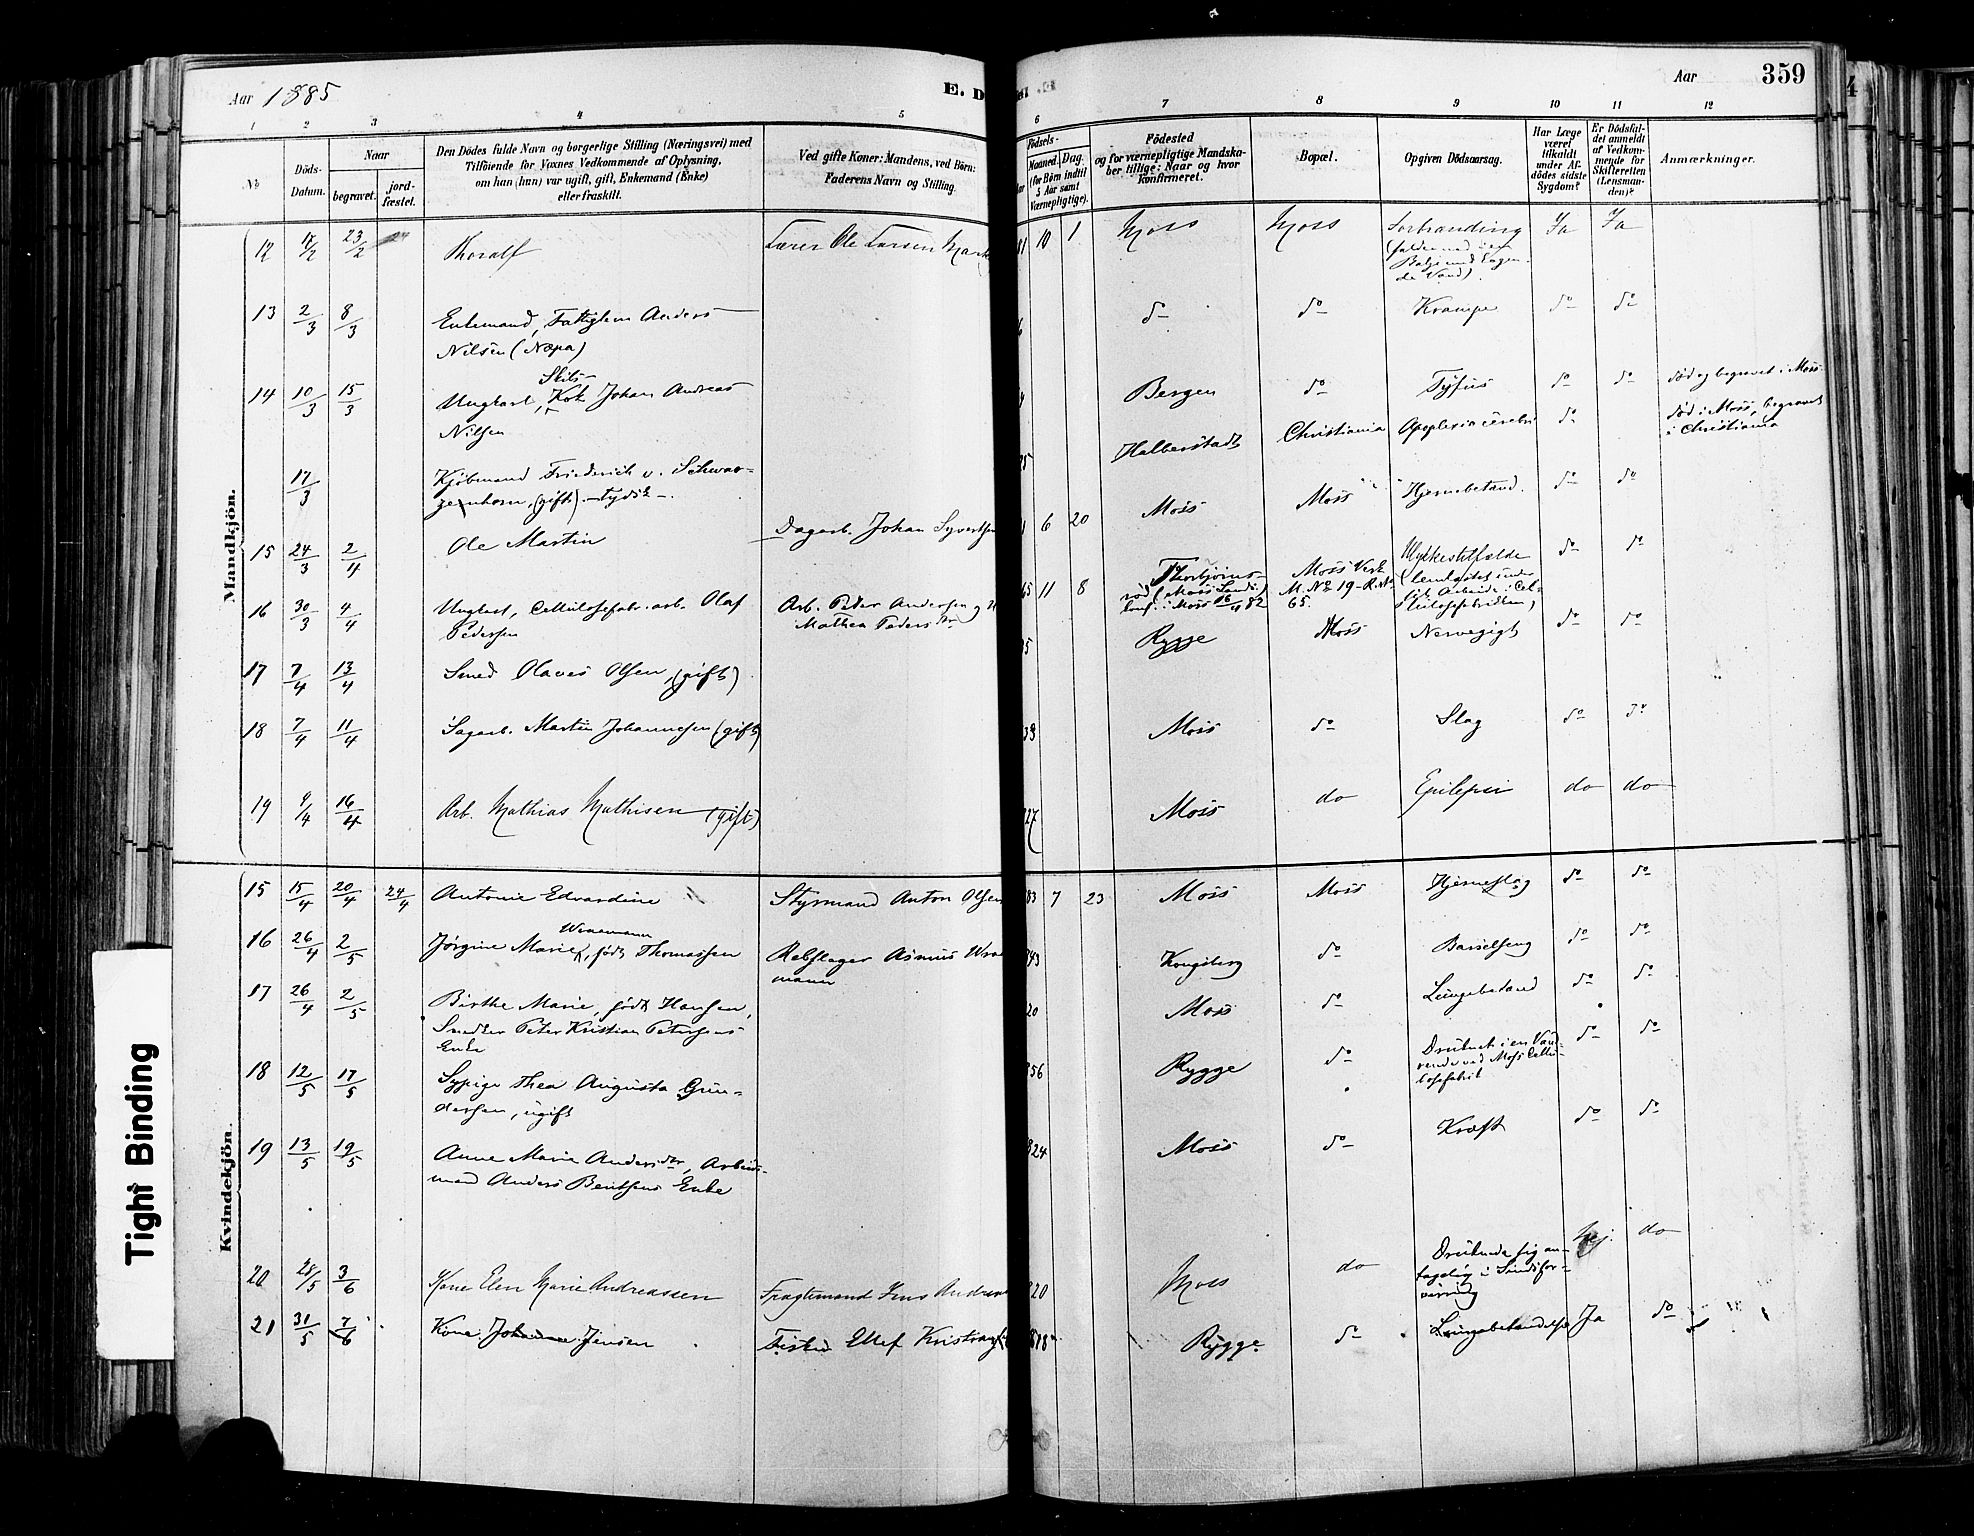 Aar 1885
E. D
Aar
359
1 2 3 4 5 6 7 8 9 10 11 12
№
Döds-
Datum.
Naar
begravet.
jord-
fæstet.
Den Dödes fulde Navn og borgerlige Stilling (Næringsvei) med
Tilföiende for Voxnes Vedkommende af Oplysning,
om han (hun) var ugift, gift, Enkemand (Enke)
eller fraskilt.
Ved gifte Koner: Mandens, ved Börn:
Faderens Navn og Stilling.
Födsels-
Maaned. Dag.
(for Börn indtil
5 Aar samt
Værnepligtige).
Födested
og for værnepligtige Mandska-
ber tillige: Naar og hvor
konfirmeret.
Bopæl.
Opgiven Dödsaarsag.
Har Læge
været
tilkaldt
under Af-
dödes sidste
Sygdom?
Er Dödsfal-
det anmeldt
af Vedkom-
mende for
Skifteretten
(Lensman-
den)?
Anmærkninger.
Mandkjön.
12 23/2 Thoralf Lærer Ole Larsen 81 10 1 Moss Moss Forbranding Ja Ja
(faldt ned i en
Balje med kogen-
de Vand).
13 2/3 8/3 Enkemand, Fattiglem Anders
Nilsen (Næpa) 6 do do Krampe do do
14 10/3 15/3 Ungkarl, Skibs-Kok Johan Andreas
Nilsen Bergen do Tyfus do do död og begravet i Moss
17/3 Kjöbmand Friederich v. Schwar-
zenhorn, (gift). – tydsk –. 35 Halberstadt Christiania Apoplexia cerebri do död i Moss, begravet
i Christiania
15 24/3 2/4 Ole Martin Dagarb. Johan Syvertsen 6 20 Moss Moss Hjernebetænd. do do
16 30/3 4/4 Ungkarl, Cellulosefabr. arb. Olaf
Pedersen Arb. Peder Andersen og
Mathea Pedersdtr 65 11 8 Thorbjörns-
röd (Moss Lands.)
konf. i Moss 16/4 82 Moss Værk
M. No 19 – R. No
65. Ulykkestilfælde
(lemlæstet under
sit Arbeide i Cel-
lulosefabriken) do do
17 7/4 13/4 Smed Olaves Olsen, (gift) 35 Rygge Moss Nervegigt do do
18 7/4 11/4 Sagarb. Martin Johannesen (gift) 39 Moss do Slag do do
19 9/4 16/4 Arb. Mathias Mathisen (gift) 27 Moss do Epilepsi do do
Kvindekjön.
15 15/4 20/4 24/4 Antonie Edvardine Styrmand Anton Olsen 83 7 23 Moss Moss Hjerneslag do do
16 26/4 2/5 Jörgine Marie Wranmann, födt Thomassen Rebslager Asmus Wran-
mann 43 Kongsberg do Barselseng do do
17 26/4 2/5 Birthe Marie, födt Hansen,
Smedker Peter Kristian Petersens
Enke 20 Moss do Lungebetænd do do
18 12/5 17/5 Sypige Thea Augusta Gun-
dersen, ugift 56 Rygge do Druknet i en Vand-
rende ved Moss Cellu-
losefabrik do do
19 13/5 19/5 Anne Marie Andersdtr, Arbeids-
mand Anders Bentsens Enke 824 Moss do Kræft do do
20 28/5 3/6 Kone Elen Marie Andreassen Fragtemand Jens Andreas 820 Moss do Druknede sig an-
tagelig i Sindsfor-
virring Nej. do
21 31/5 7/6 Kone Johanne Jensen Fisker Ellef Kristian 878 Rygge do Lungebetændelse Ja do
Tight Binding